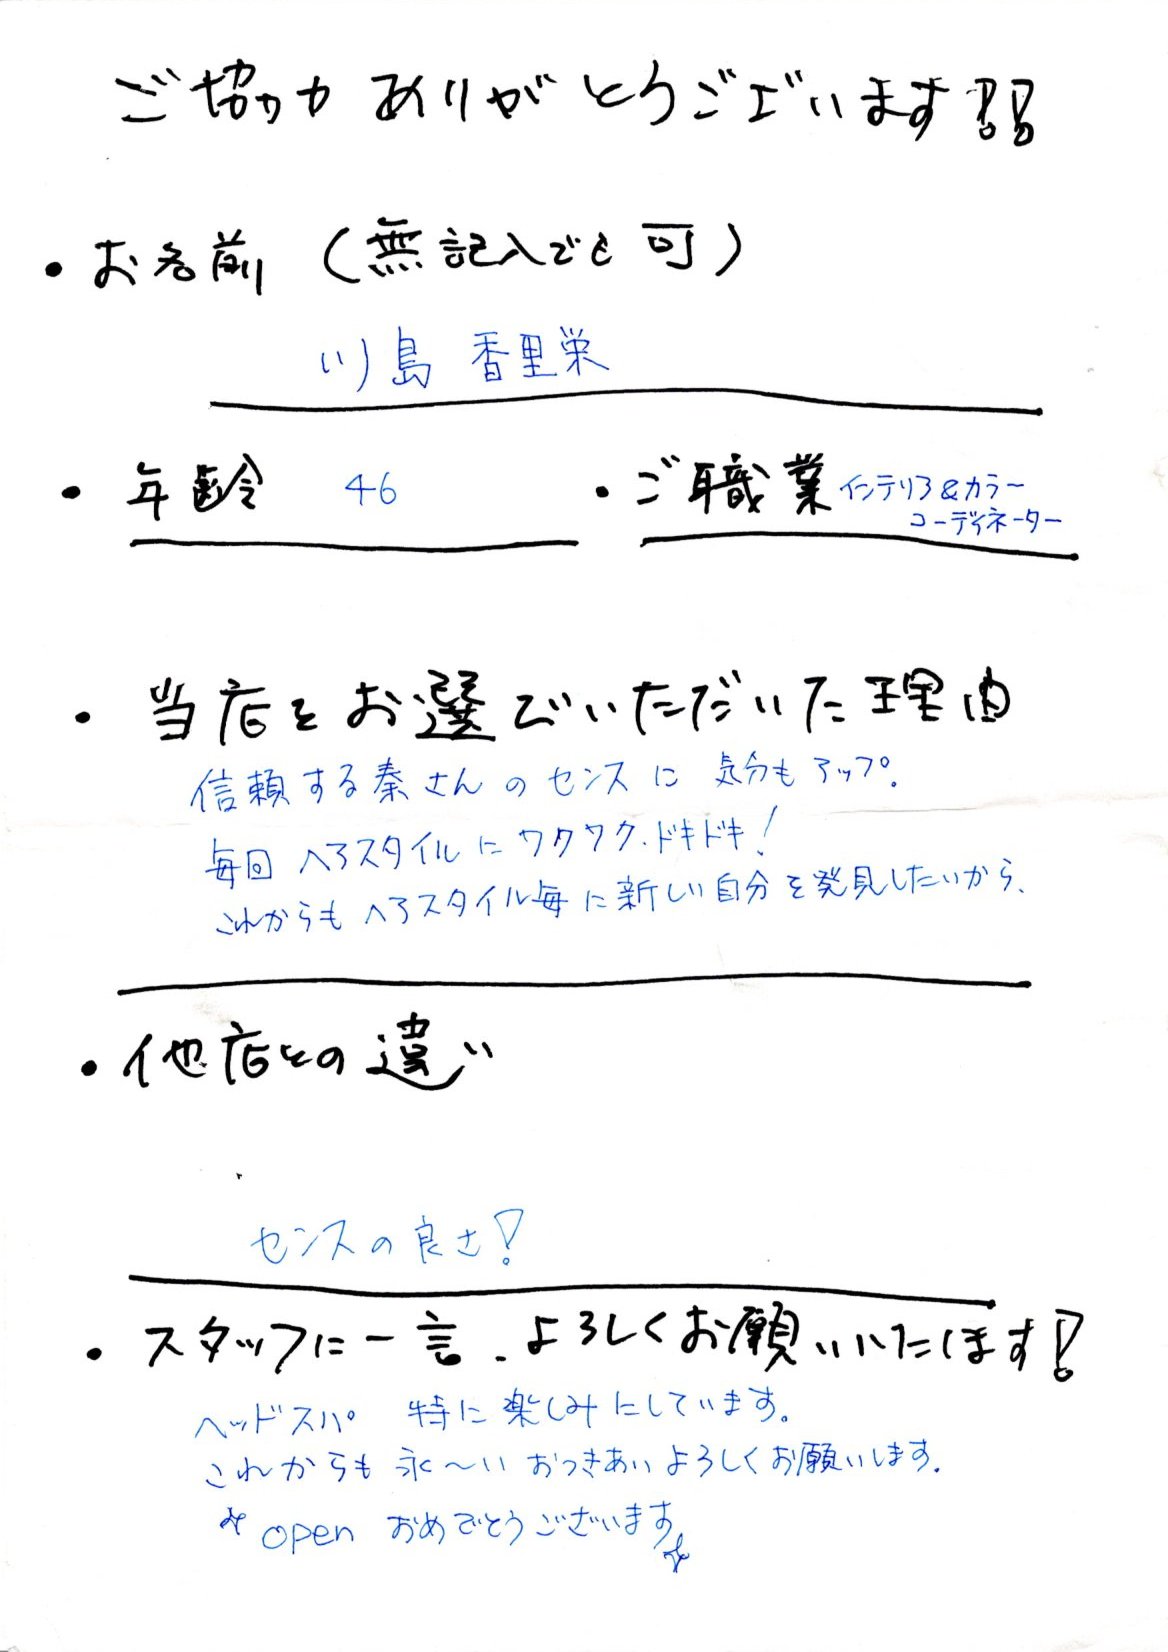 ご協力ありがとうございます!!
・お名前（無記入でも可）
川島 香里栄
・年齢 46
・ご職業 インテリア&カラー
コーディネーター
・当店をお選びいただいた理由
信頼する秦さんのセンスに 気分もアップ。
毎回 ヘアスタイルに ワクワク、ドキドキ!
これからも ヘアスタイル毎に新しい自分を発見したいから、
・他店との違い
センスの良さ!
・スタッフに一言、よろしくお願いいたします!
ヘッドスパ 特に楽しみにしています。
これからも 永〜い おつきあいよろしくお願いします。
open おめでとうございます